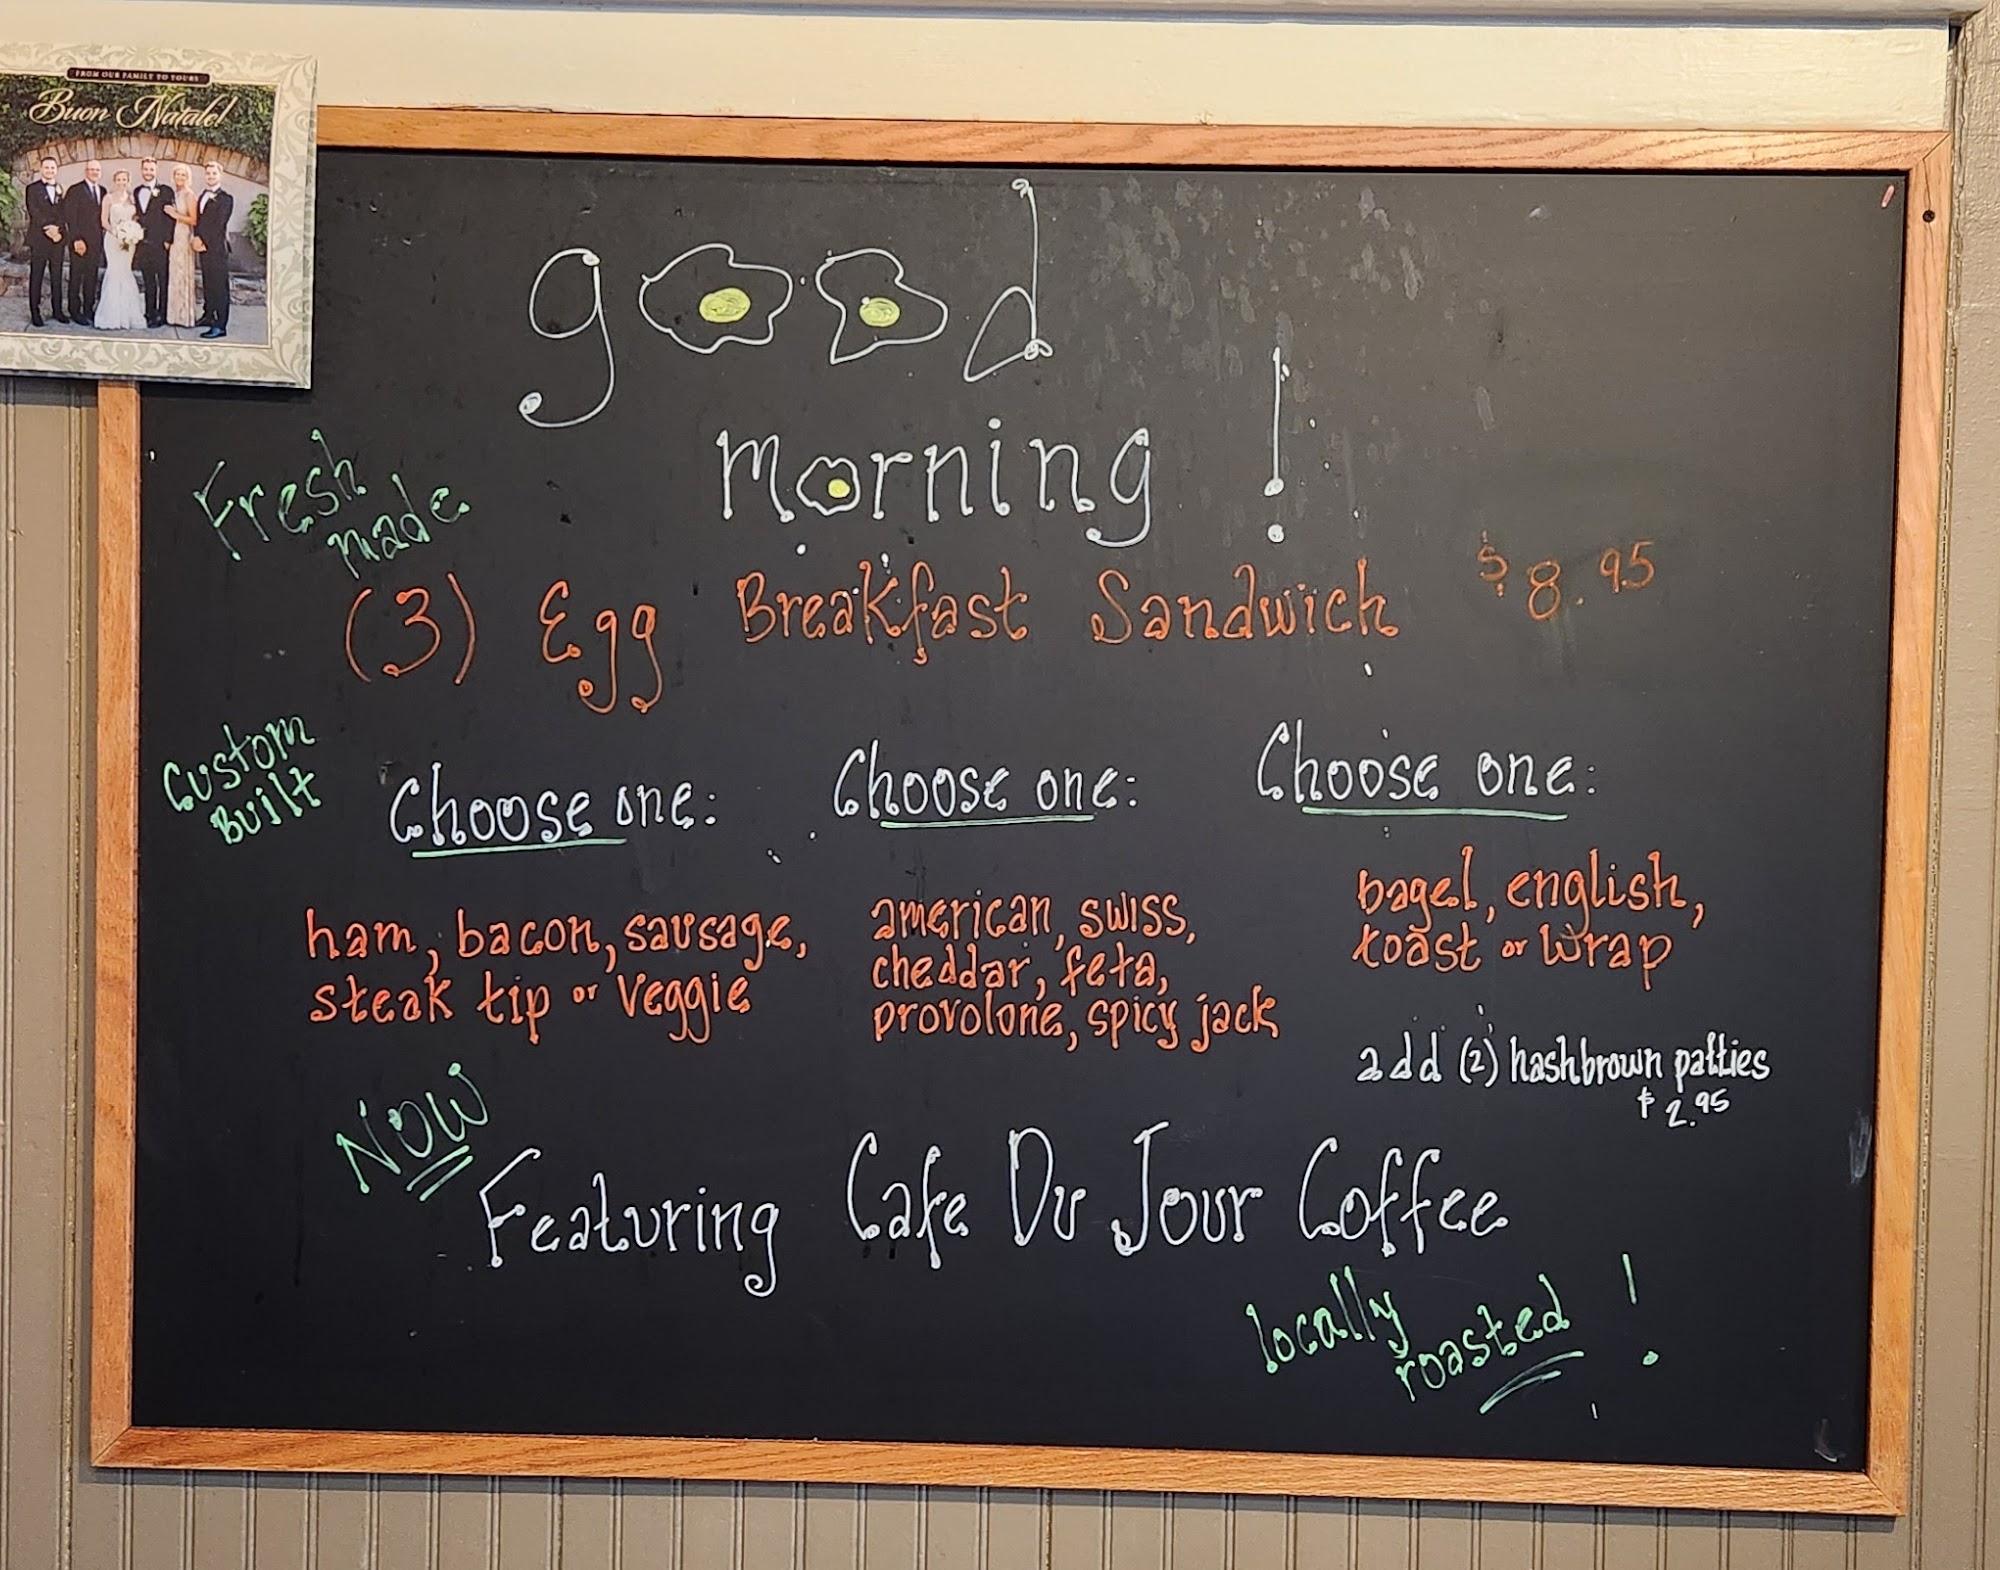 FROM OUR FAMILY TO YOURS
Buon Natale!
good
morning !
Fresh
made
(3) Egg Breakfast Sandwich $8.95
Custom
Built
Choose one:
ham, bacon, sausage,
steak tip or Veggie
Choose one:
american, swiss,
cheddar, feta,
provolone, spicy jack
Choose one:
bagel, english,
toast or wrap
add (2) hashbrown patties
$2.95
NOW
Featuring Cafe Du Jour Coffee
locally
roasted !